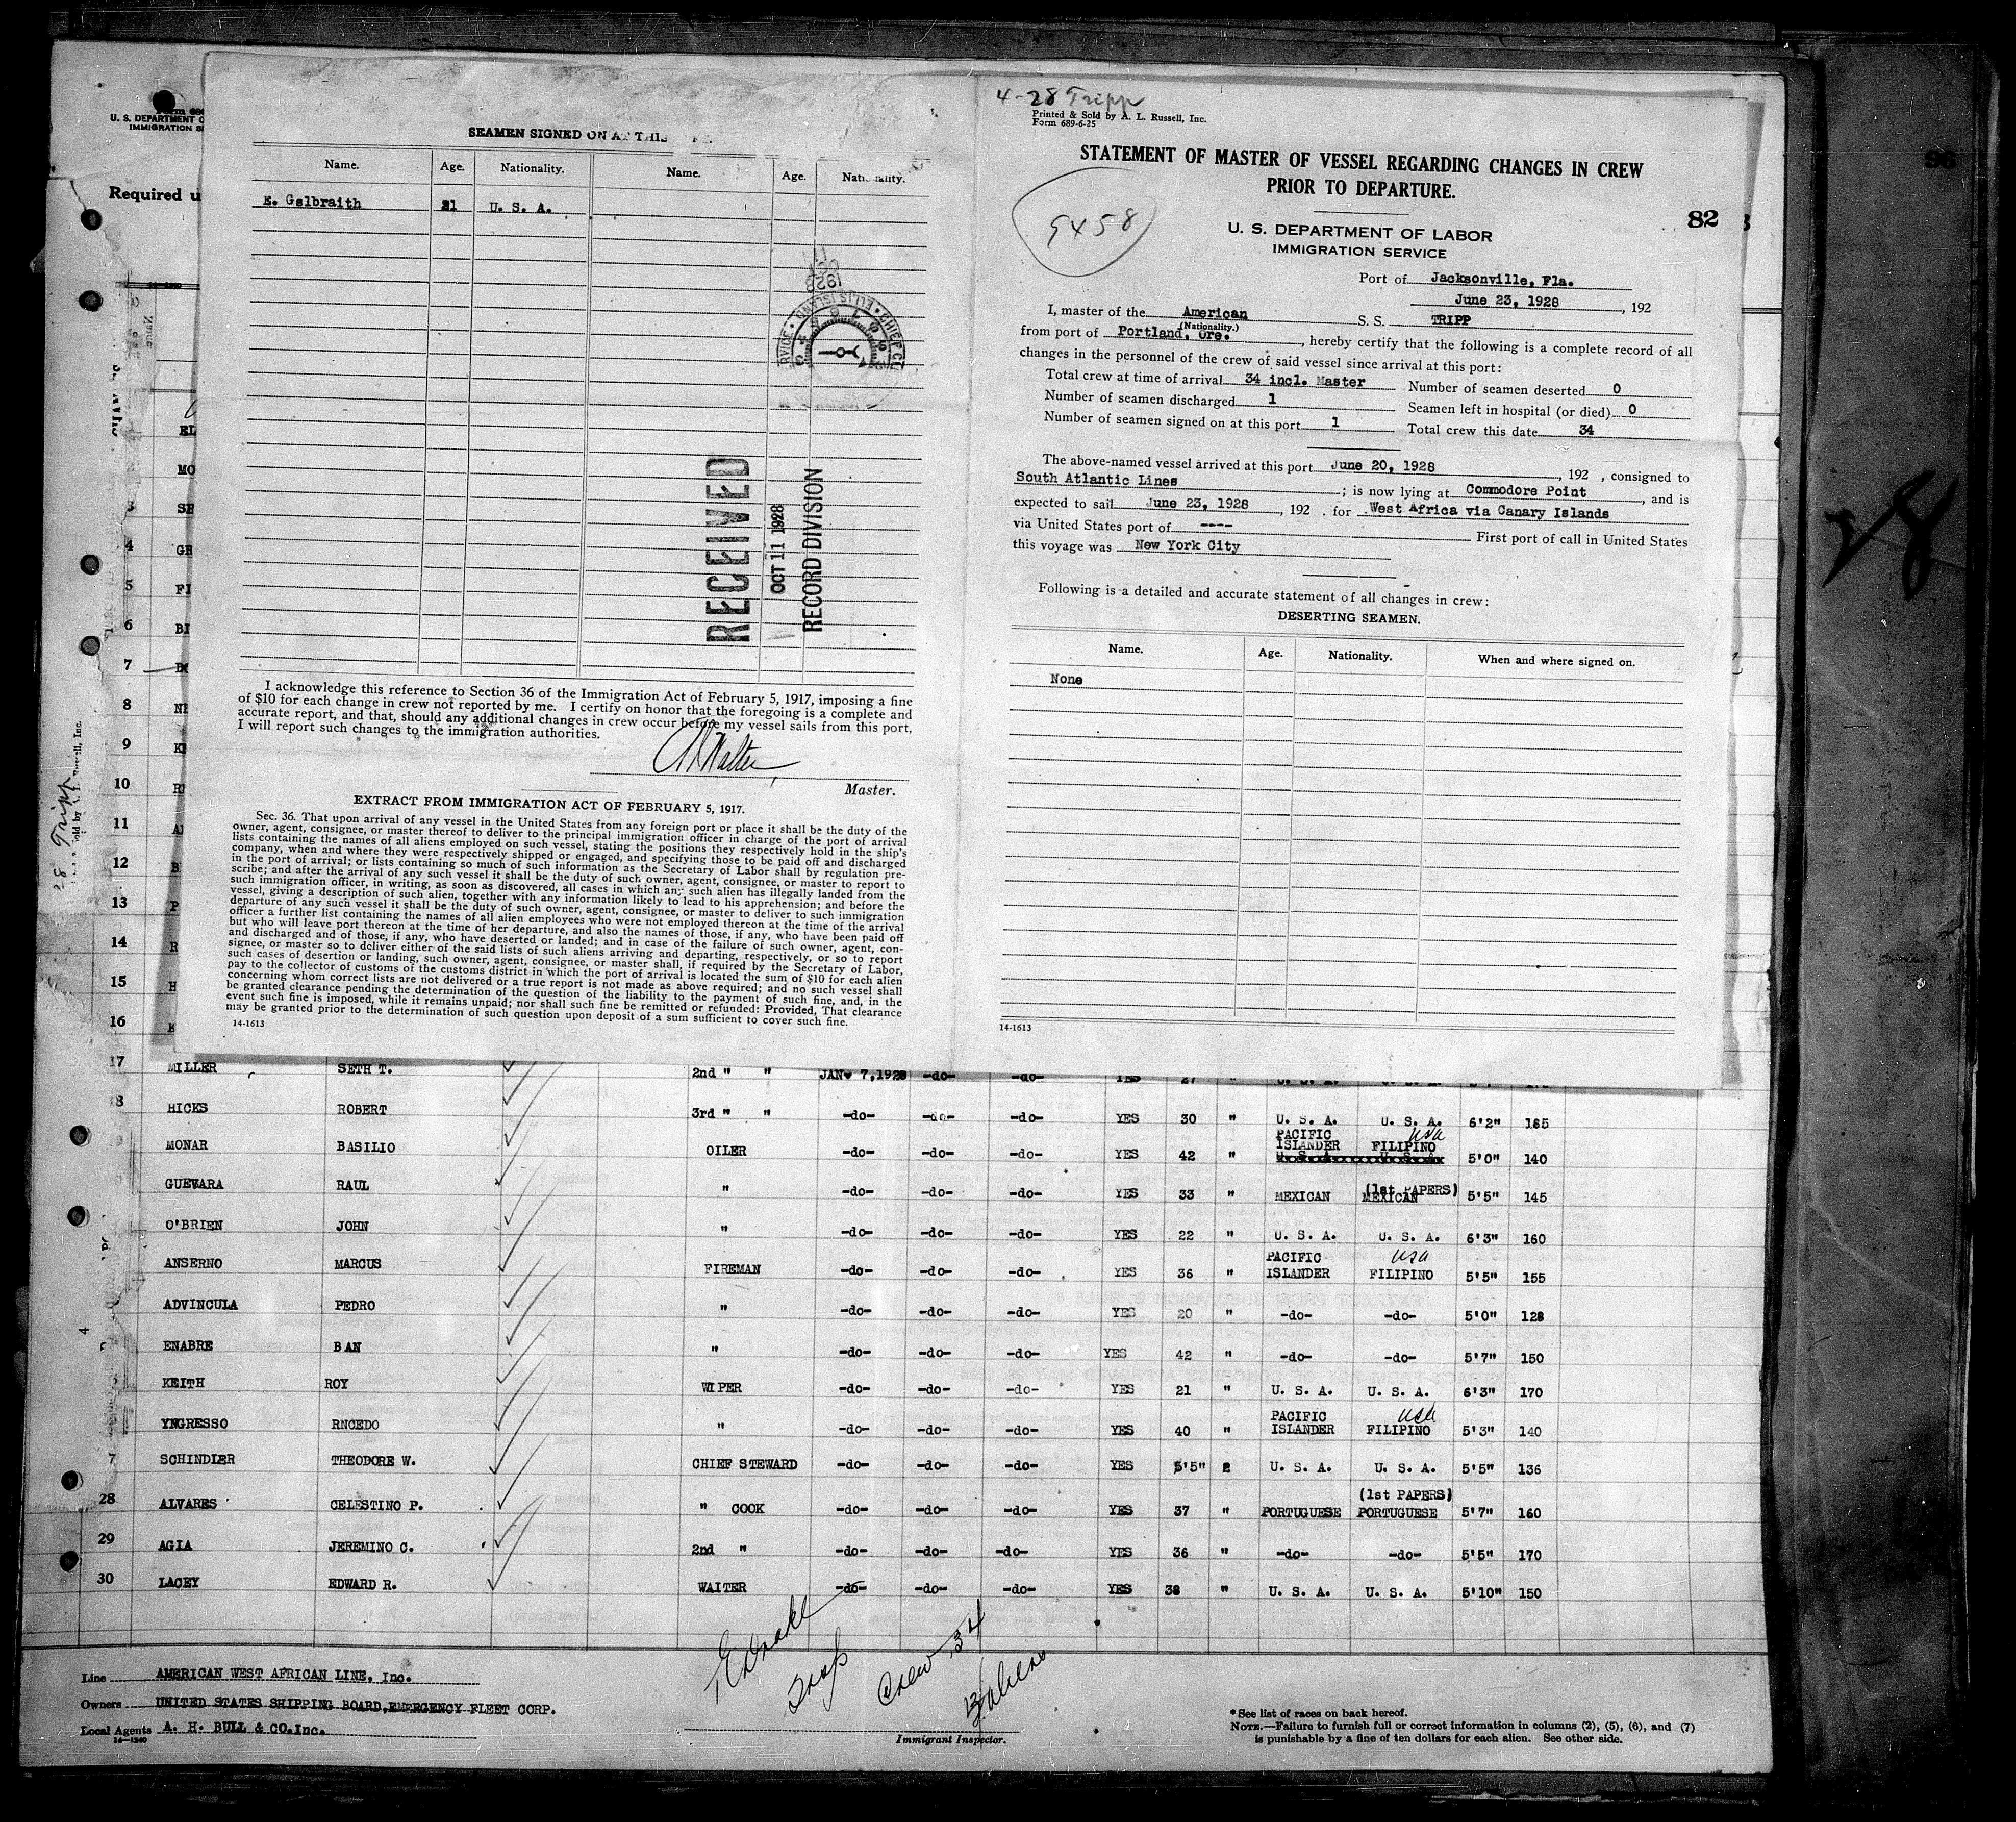 4-28 Tripp
Printed & Sold by A. L. Russell, Inc.
Form 689-6-25
STATEMENT OF MASTER OF VESSEL REGARDING CHANGES IN CREW
PRIOR TO DEPARTURE.
9458
82
96
28
U. S. DEPARTMENT OF LABOR
IMMIGRATION SERVICE
Port of Jacksonville, Fla.
June 23, 1928, 192
I, master of the American S. S. TRIPP
(Nationality.)
from port of Portland, Ore., hereby certify that the following is a complete record of all
changes in the personnel of the crew of said vessel since arrival at this port:
Total crew at time of arrival 34 incl. Master Number of seamen deserted 0
Number of seamen discharged 1 Seamen left in hospital (or died) 0
Number of seamen signed on at this port 1 Total crew this date 34
The above-named vessel arrived at this port June 20, 1928, 192 , consigned to
South Atlantic Lines; is now lying at Commodore Point, and is
expected to sail June 23, 1928, 192 . for West Africa via Canary Islands
via United States port of ---- First port of call in United States
this voyage was New York City
Following is a detailed and accurate statement of all changes in crew:
DESERTING SEAMEN.
Name. Age. Nationality. When and where signed on.
None
14-1613
SEAMEN SIGNED ON AT THIS
Name. Age. Nationality. Name. Age. Nationality.
E. Galbraith 21 U. S. A.
RECEIVED
OCT 11 1928
RECORD DIVISION
I acknowledge this reference to Section 36 of the Immigration Act of February 5, 1917, imposing a fine
of $10 for each change in crew not reported by me. I certify on honor that the foregoing is a complete and
accurate report, and that, should any additional changes in crew occur before my vessel sails from this port,
I will report such changes to the immigration authorities.
Master.
EXTRACT FROM IMMIGRATION ACT OF FEBRUARY 5, 1917.
Sec. 36. That upon arrival of any vessel in the United States from any foreign port or place it shall be the duty of the
owner, agent, consignee, or master thereof to deliver to the principal immigration officer in charge of the port of arrival
lists containing the names of all aliens employed on such vessel, stating the positions they respectively hold in the ship's
company, when and where they were respectively shipped or engaged, and specifying those to be paid off and discharged
in the port of arrival; or lists containing so much of such information as the Secretary of Labor shall by regulation pre-
scribe; and after the arrival of any such vessel it shall be the duty of such owner, agent, consignee, or master to report to
such immigration officer, in writing, as soon as discovered, all cases in which any such alien has illegally landed from the
vessel, giving a description of such alien, together with any information likely to lead to his apprehension; and before the
departure of any such vessel it shall be the duty of such owner, agent, consignee, or master to deliver to such immigration
officer a further list containing the names of all alien employees who were not employed thereon at the time of the arrival
but who will leave port thereon at the time of her departure, and also the names of those, if any, who have been paid off
and discharged and of those, if any, who have deserted or landed; and in case of the failure of such owner, agent, con-
signee, or master so to deliver either of the said lists of such aliens arriving and departing, respectively, or so to report
such cases of desertion or landing, such owner, agent, consignee, or master shall, if required by the Secretary of Labor,
pay to the collector of customs of the customs district in which the port of arrival is located the sum of $10 for each alien
concerning whom correct lists are not delivered or a true report is not made as above required; and no such vessel shall
be granted clearance pending the determination of the question of the liability to the payment of such fine, and, in the
event such fine is imposed, while it remains unpaid; nor shall such fine be remitted or refunded: Provided, That clearance
may be granted prior to the determination of such question upon deposit of a sum sufficient to cover such fine.
14-1613
U. S. DEPARTMENT O
IMMIGRATION S
Required u
EL
MO
3 SE
4 GR
5 FI
6 BI
7 BO
8 NE
9 KE
10 RI
11 A
12 B
13 P
14 R
15 H
16 K
28 Tripp
17 MILLER SETH T. 2nd " " JAN. 7,1928 -do- -do- YES 27 " U. S. A. U. S. A.
8 HICKS ROBERT 3rd " " -do- -do- -do- YES 30 " U. S. A. U. S. A. 6'2" 185
MONAR BASILIO OILER -do- -do- -do- YES 42 " PACIFIC ISLANDER FILIPINO usa 5'0" 140
GUEVARA RAUL " -do- -do- -do- YES 33 " MEXICAN (1st PAPERS) MEXICAN 5'5" 145
O'BRIEN JOHN " -do- -do- -do- YES 22 " U. S. A. U. S. A. 6'3" 160
ANSERNO MARCUS FIREMAN -do- -do- -do- YES 36 " PACIFIC ISLANDER usa FILIPINO 5'5" 155
ADVINCULA PEDRO " -do- -do- -do- YES 20 " -do- -do- 5'0" 128
ENABRE BAN " -do- -do- -do- YES 42 " -do- -do- 5'7" 150
KEITH ROY WIPER -do- -do- -do- YES 21 " U. S. A. U. S. A. 6'3" 170
YNGRESSO RNCEDO " -do- -do- -do- YES 40 " PACIFIC ISLANDER usa FILIPINO 5'3" 140
7 SCHINDLER THEODORE W. CHIEF STEWARD -do- -do- -do- YES 5'5" U. S. A. U. S. A. 5'5" 136
28 ALVARES CELESTINO P. " COOK -do- -do- -do- YES 37 " PORTUGUESE (1st PAPERS) PORTUGUESE 5'7" 160
29 AGIA JEREMINO C. 2nd " -do- -do- -do- YES 36 " -do- -do- 5'5" 170
30 LACEY EDWARD R. WAITER -do- -do- -do- YES 38 " U. S. A. U. S. A. 5'10" 150
Crew 34
Line AMERICAN WEST AFRICAN LINE, Inc.
Owners UNITED STATES SHIPPING BOARD,EMERGENCY FLEET CORP.
Local Agents A. H. BULL & CO.Inc.
14-1240
Immigrant Inspector.
*See list of races on back hereof.
NOTE.—Failure to furnish full or correct information in columns (2), (5), (6), and (7)
is punishable by a fine of ten dollars for each alien. See other side.